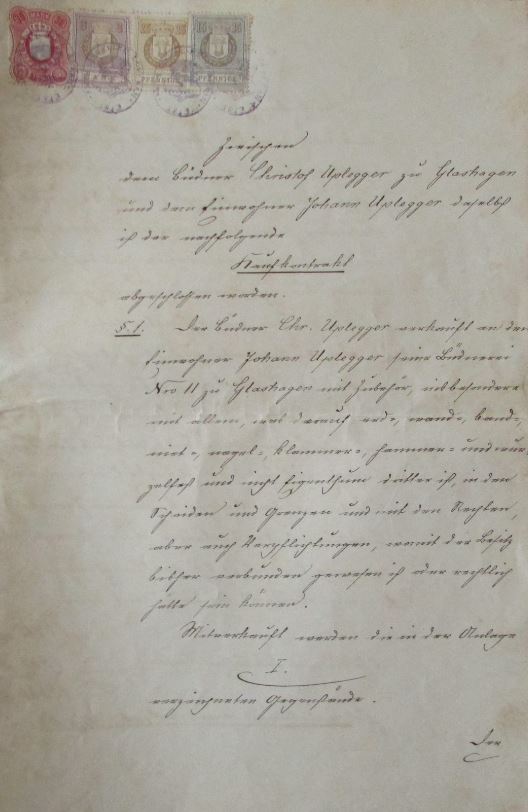 Zwischen
dem Büdner Christof Uplegger zu Glashagen
und dem Einwohner Johann Uplegger daselbst
ist der nachfolgende
Kaufkontrakt
abgeschlossen worden.
§. 1. Der Büdner Chr. Uplegger verkauft an den
Einwohner Johann Uplegger seine Büdnerei
Nro 11 zu Glashagen mit Zubehör, insbesondere
mit allem, was darauf erd-, wand-, band-,
niet-, nagel-, klammer-, hammer- und wur-
zelfest und nicht Eigenthum dritter ist, in den
Scheiden und Grenzen und mit den Rechten,
aber auch Verpflichtungen, womit der Besitz
bisher verbunden gewesen ist oder rechtlich
hätte sein können.
Mitverkauft werden die in der Anlage
I.
verzeichneten Gegenstände.
Der